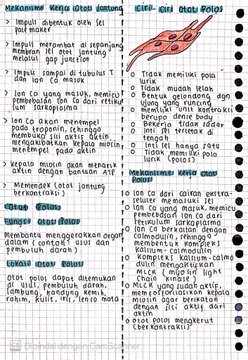 Mekanisme Kerja Otot Jantung
> Impuls dibentuk oleh sel
pacemaker
> Impuls merambat di sepanjang
membran sel otot jantung
melalui gap junction
> Impuls sampai di tubulus T
dan ion Ca masuk
> Ion Ca yang masuk, memicu
pembebasan ion Ca dari retiku
lum sarkoplasma
> Ion Ca akan menempel
pada troponin, sehingga
membuka sisi aktif aktin,
mengakibatkan kepala miosin
menempel pada aktin
> Kepala miosin akan menarik
aktin dengan bantuan ATP
> Memendek (otot jantung
berkontraksi)
Otot Polos
Fungsi Otot Polos
Membantu menggerakkan organ
dalam (contoh: usus dan
pembuluh darah)
Lokasi Otot Polos
Otot polos dapat ditemukan
di usus, pembuluh darah,
lambung, kandung kemih,
rahim, kulit, iris, lensa mata
Ciri-Ciri Otot Polos
Tidak memiliki pola
lurik
Tidak mudah lelah
Bentuk gelondong
ujung yang runcing
memiliki unit kontraksi
berupa dense body
Bekerja tidak sadar
Inti sel terletak di
tengah
Inti sel hanya satu
Tidak memiliki pola
lurik (polos)
Mekanisme Kerja Otot
Polos
Ion Ca dari cairan ekstra-
seluler memasuki sel
Ion Ca yang masuk, memicu
pembebasan ion Ca dari
retikulum sarkoplasma
Ion Ca berikatan dengan
calmodulin, sehingga
membentuk kompleks
kalsium-calmodulin
Kompleks kalsium-calmo
dulin mengaktifkan
MLCK (myosin light
chain kinase)
MLCK yang sudah aktif,
memfosforilasikan kepala
miosin agar berikatan
dengan sisi aktif dari
aktin
Otot polos mengkerut
(berkontraksi)
Dipindai dengan CamScanner